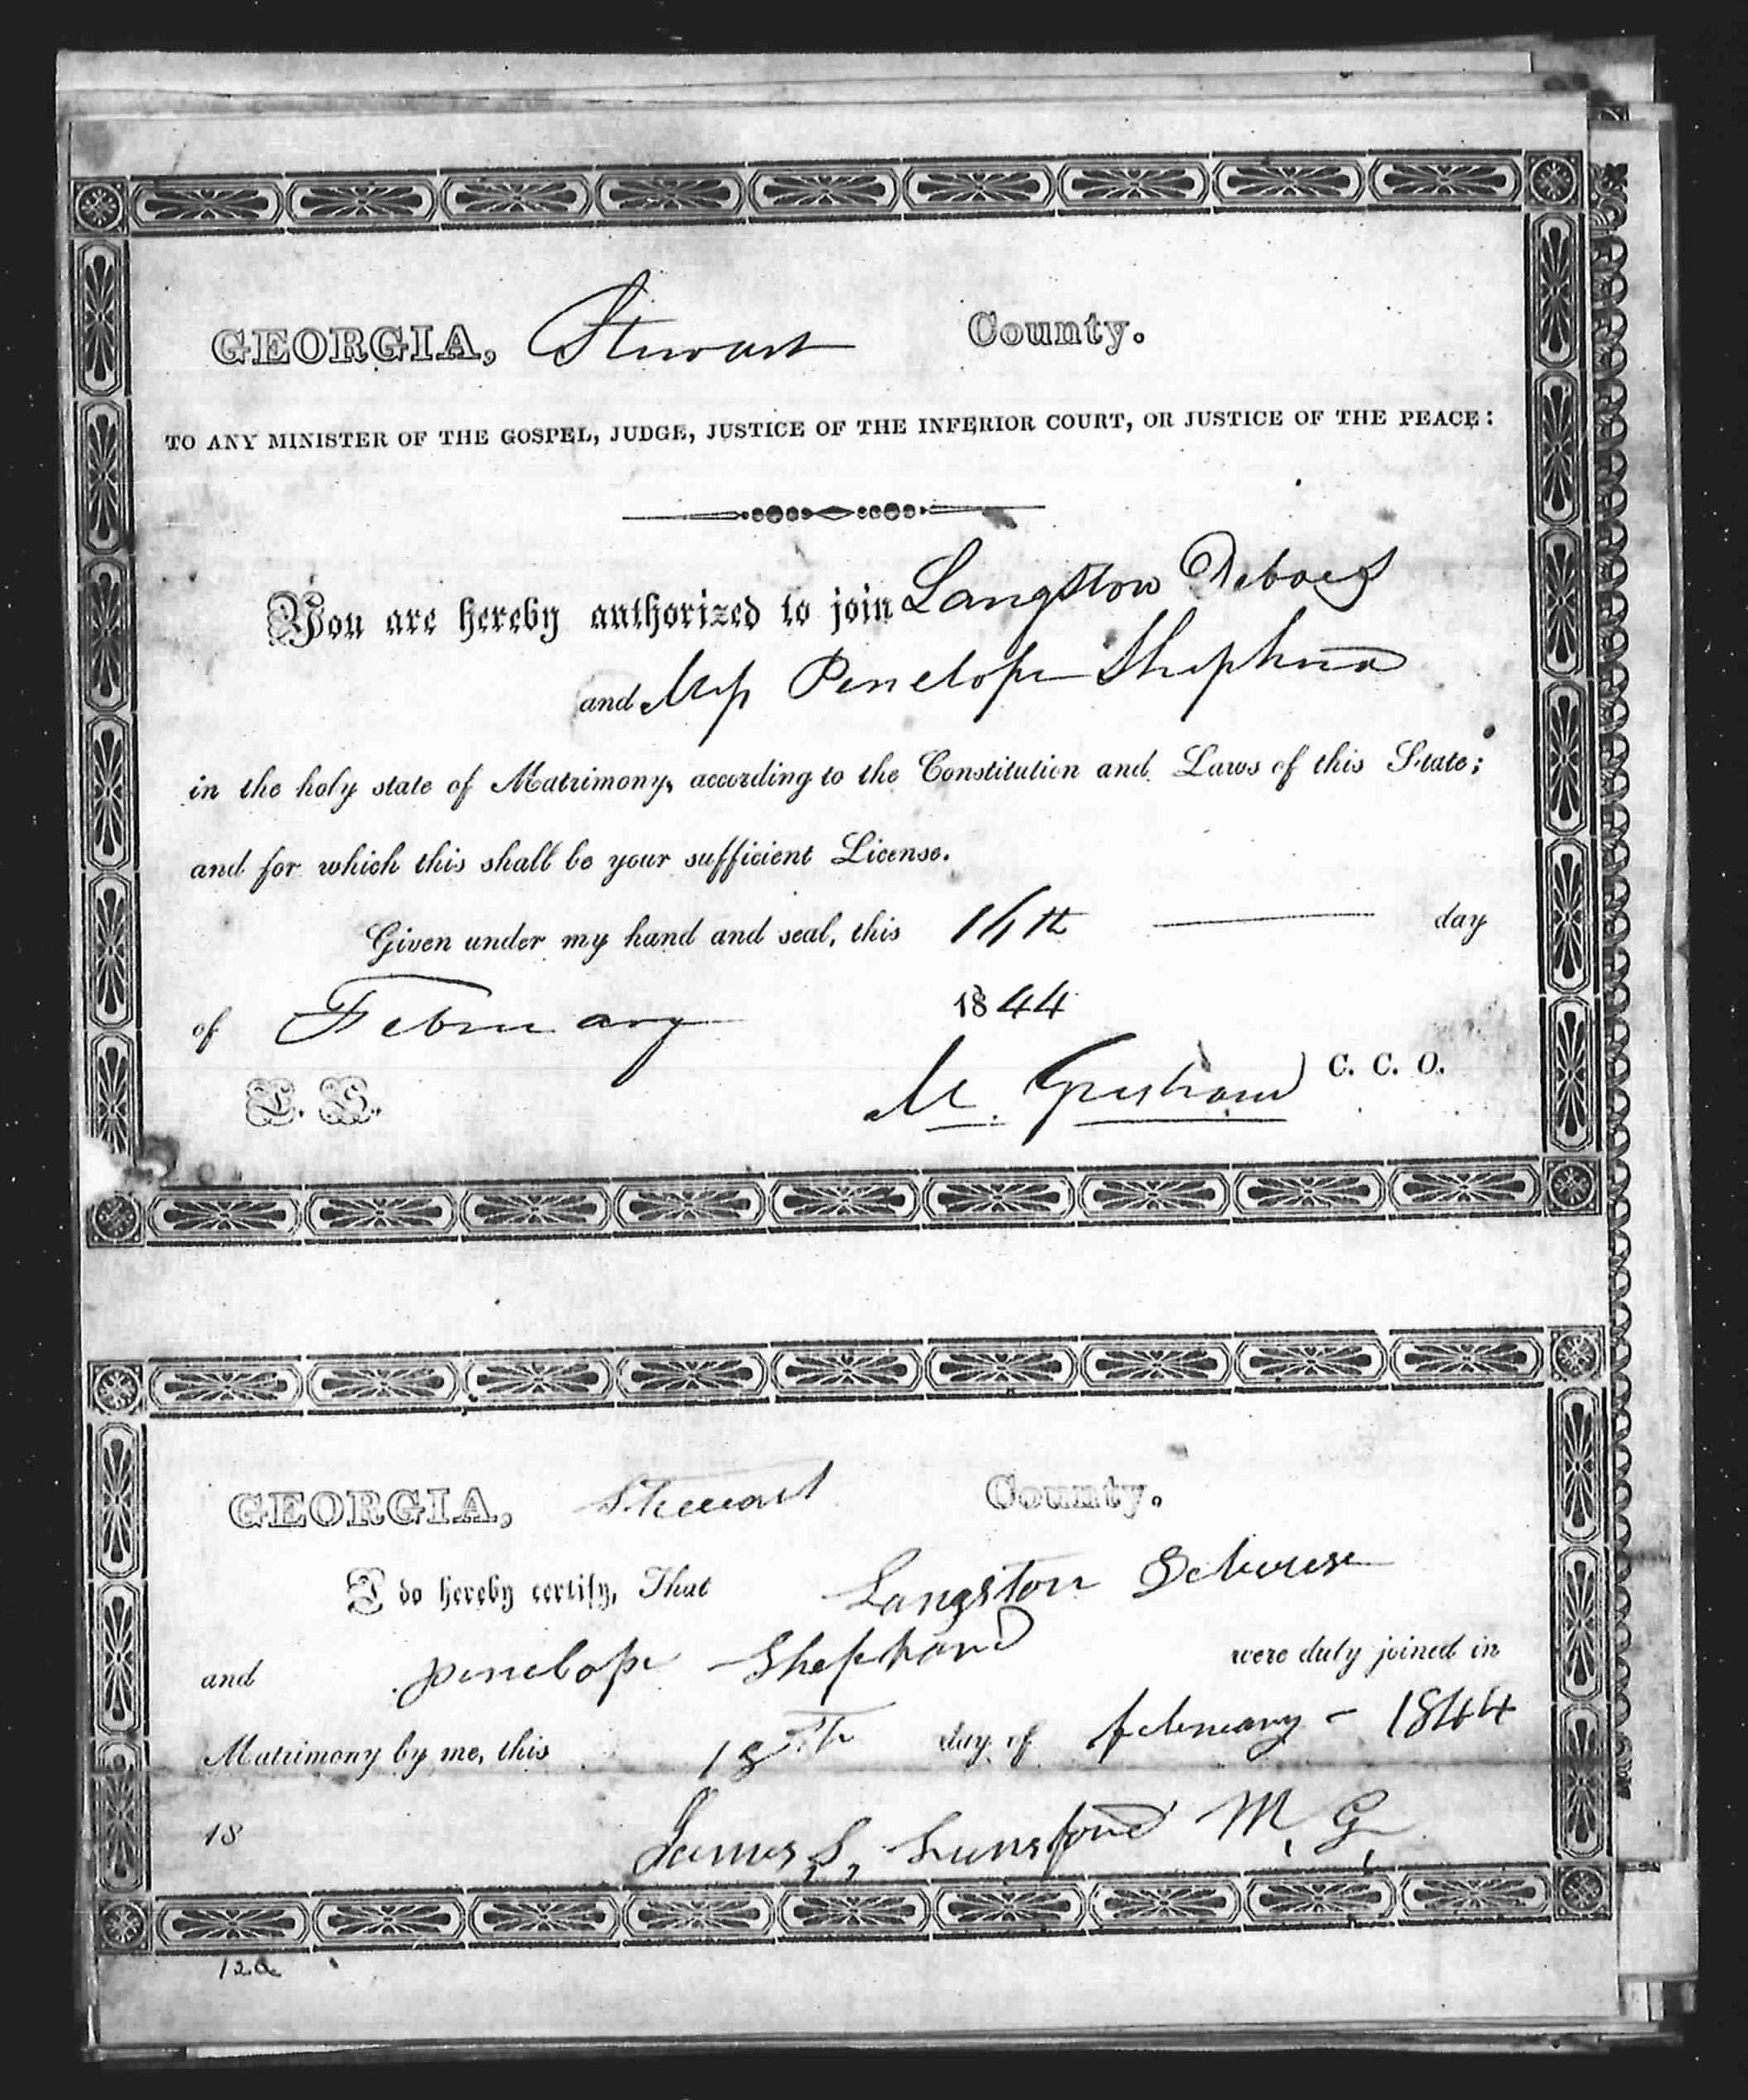 GEORGIA, Stewart County.
TO ANY MINISTER OF THE GOSPEL, JUDGE, JUSTICE OF THE INFERIOR COURT, OR JUSTICE OF THE PEACE:
You are hereby authorized to join Langston
and Miss Penelope Shephard
in the holy state of Matrimony, according to the Constitution and Laws of this State;
and for which this shall be your sufficient License.
Given under my hand and seal, this day
of February 1844
L. S. M. Gresham C. C. O.
GEORGIA, Stewart County.
I do hereby certify, That Langston
and penelope Shephard were duly joined in
Matrimony by me, this 18th day of february - 1844
18 James S. Lunsford M. G.